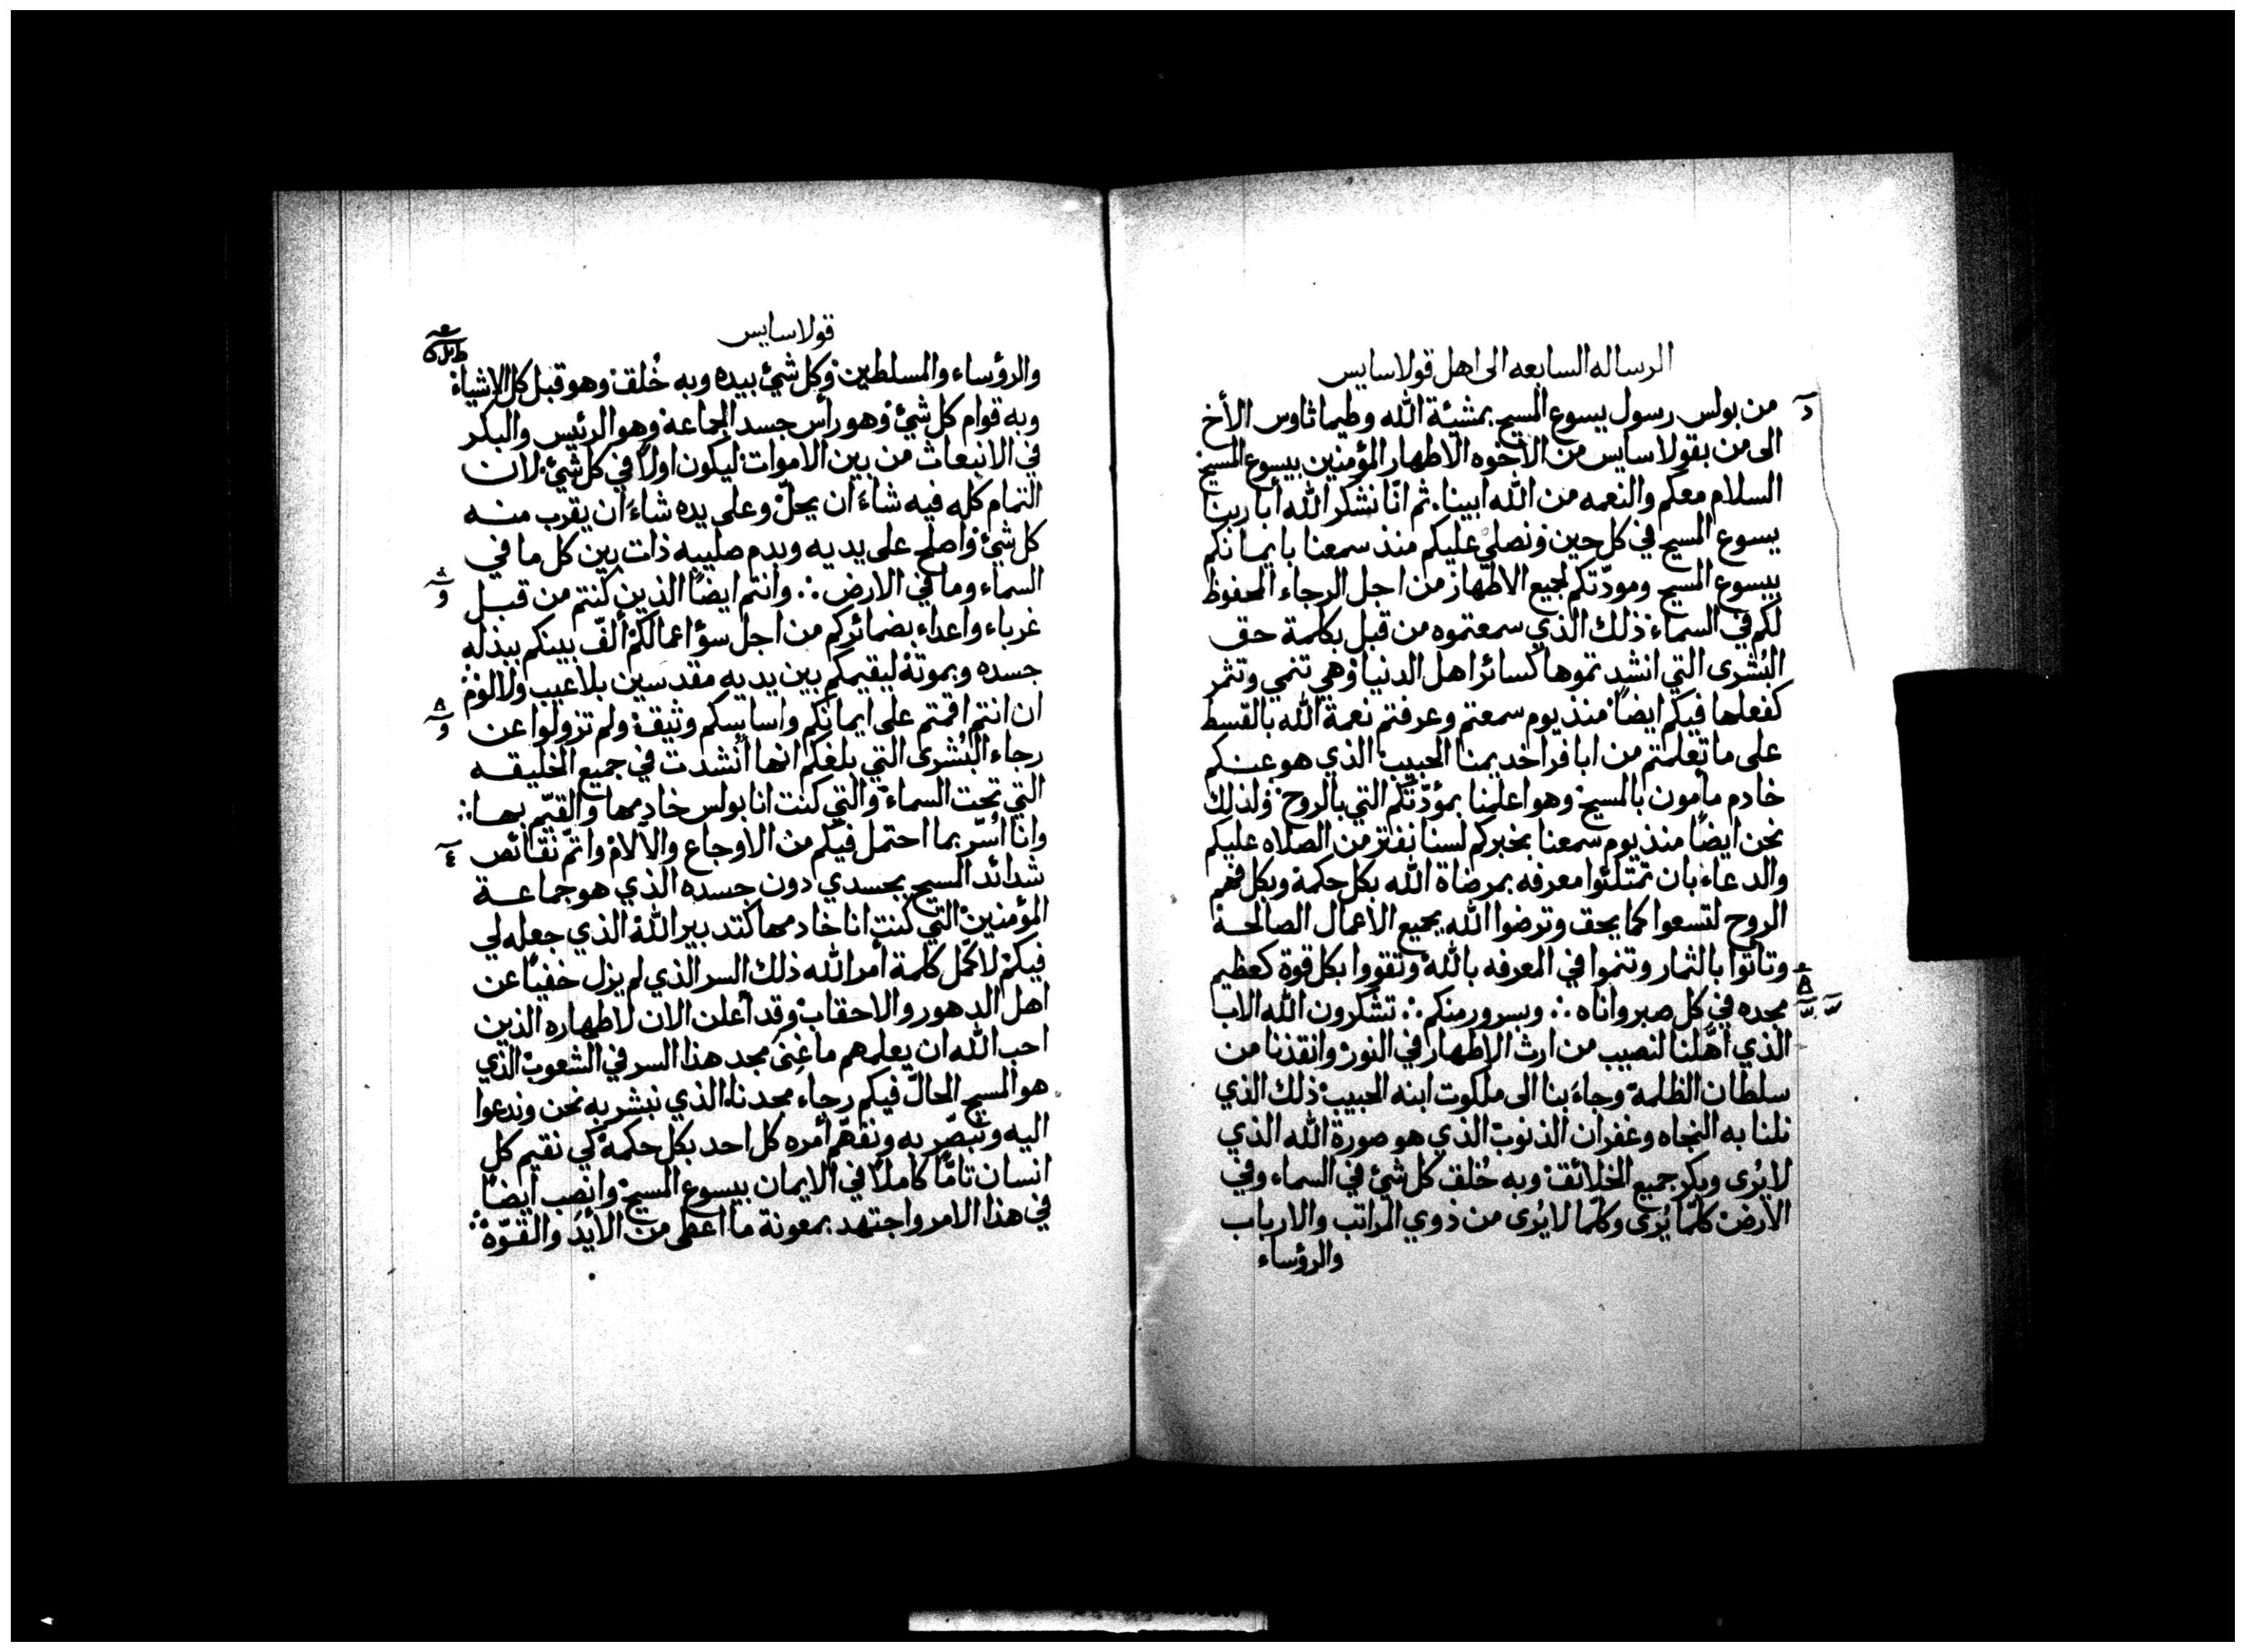 الرساله السابعه الى اهل قولاسايس
من بولس رسول يسوع المسيح بمشيئة الله وطيماثاوس الأخ
الى من بقولاسايس من الأخوه الاطهار المؤمنين بيسوع المسيح
السلام معكم والنعمه من الله ابينا. ثم انّا نشكر الله أبا ربنا
يسوع المسيح في كل حين ونصلي عليكم منذ سمعنا بايمانكم
بيسوع المسيح ومودّتكم لجيع الاطهار من اجل الرجاء المحفوظ
لكم في السماء ذلك الذي سمعتموه من قبل بكلمة حق
البُشرى التي انشدتموها كسائر اهل الدنيا وهي تنمي وتثمر
كفعلها فيكم ايضاً منذ يوم سمعتم وعرفتم نعمة الله بالقسط
على ما تعلمتم من ابافرا خديمنا الحبيب الذي هو عنكم
خادم مأمون بالمسيح وهو اعلمنا بمؤدّتكم التي بالروح ولذلك
نحن ايضاً منذ يوم سمعنا بخبركم لسنا نفتر من الصلاه عليكم
والدعاء بان تمتلئوا معرفه بمرضاة الله بكل حكمة وبكل فهم
الروح لتسعوا كما يحق وترضوا الله بجميع الاعمال الصالحة
وتأتوا بالثمار وتنموا في المعرفه بالله وتقووا بكل قوة كعظيم
مجده في كل صبر واناه ؞ وبسرور منكم ؞ تشكرون الله الاب
الذي اهّلنا لنصيب من ارث الاطهار في النور وانقذنا من
سلطان الظلمة وجاءَ بنا الى ملكوت ابنه الحبيب ذلك الذي
نلنا به النجاه وغفران الذنوب الذي هو صورة الله الذي
لا يُرى وبكر جميع الخلائق وبه خُلق كل شئ في السماء وفي
الارض كلمّا يُرى وكلّما لا يُرى من ذوي المراتب والارباب
والرؤساء
قولاسايس
والرؤساء والمسلطين وكل شئ بيده وبه خُلق وهو قبل كل الاشياء
وبه قوام كل شئ وهو رأس جسد الجماعة وهو الرئيس والبكر
في الانبعاث من بين الاموات ليكون اولاً في كل شئ لان
التمام كله فيه شاءَ ان يحلّ وعلى يده شاءَ ان يقرب منه
كل شئ واصلح على يديه وبدم صليبه ذات بين كل ما في
السماء وما في الارض ؞ وانتم ايضاً الذين كنتم من قبل
غرباء واعداء بضمائركم من اجل سؤ اعمالكم ألّف بينكم ببذله
جسده وبموته ليقيمكم بين يديه مقدسين بلا عيب ولا لوم
ان انتم اقمتم على ايمانكم واساسكم وثيقة ولم تزولوا عن
رجاء البُشرى التي بلغكم انها أُنشدت في جميع الخليقه
التي تحت السماء والتي كنت انا بولس خادمها والقيّم بها ؞
وانا اُسرّ بما احتمل فيكم من الأوجاع والآلام واتمّ نقائص
شدائد المسيح بجسدي دون جسده الذي هو جماعة
المؤمنين التي كنت انا خادمها كتدبير الله الذي جعله لي
فيكم لاكمّل كلمة أمر الله ذلك السر الذي لم يزل خفياً عن
اهل الدهور والاحقاب وقد أعلن الان لاطهاره الذين
احب الله ان يعلمهم ما غِنى مجد هذا السر في الشعوب الذي
هو المسيح الحالّ فيكم رجاء مجدنا الذي نبشر به نحن وندعوا
اليه ونبصّر به ونفهّم أمره كل احد بكل حكمة كي نقيم كل
انسان تامّا كاملاً في الايمان بيسوع المسيح وانصب ايضاً
في هذا الامر واجتهد بمعونة ما اعطى من الأيد والقوّة ؞